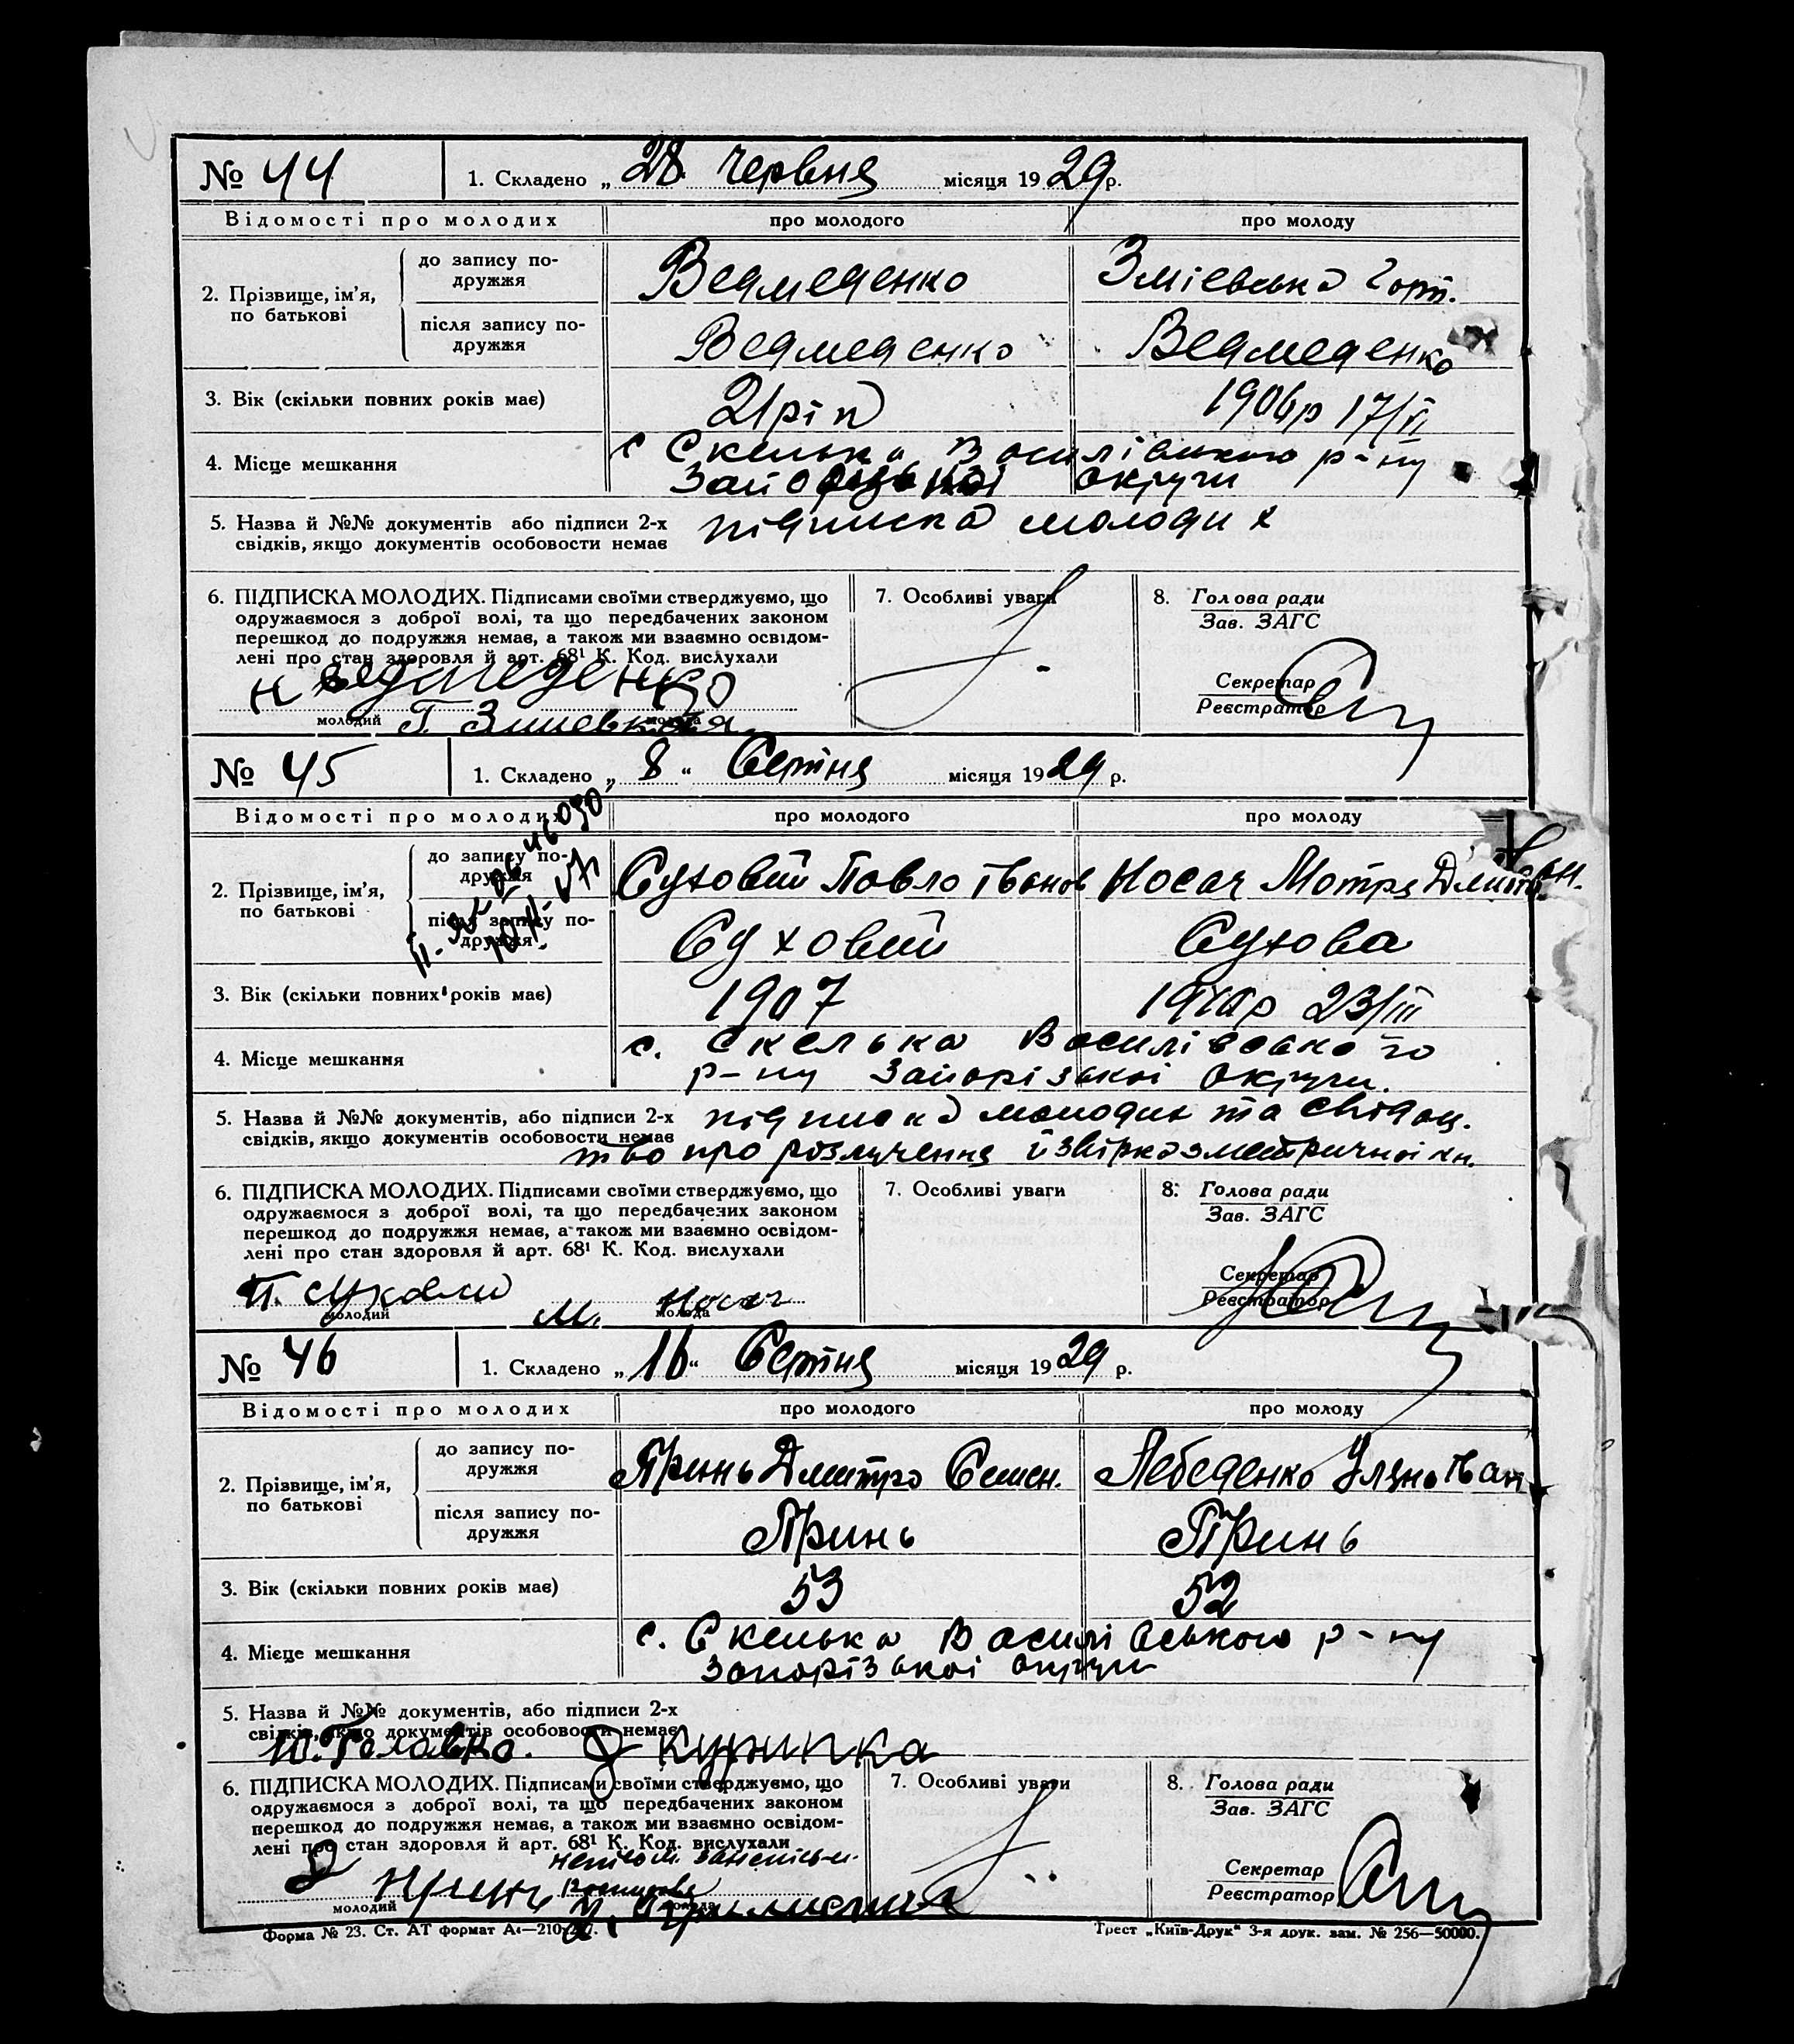 № 44 1. Складено „ 28 " червня місяця 19 29 р.
Відомості про молодих про молодого про молоду
2. Прізвище, ім'я, по батькові
до запису подружжя Ведмеденко Змієвська Горп.
після запису подружжя Ведмеденко Ведмеденко
3. Вік (скільки повних років має) 21 рік 1906 р 17/VI
4. Місце мешкання с Скелька Василівського р-ну
Запорізької округи
5. Назва й №№ документів або підписи 2-х підписка молодих
свідків, якщо документів особовости немає
6. ПІДПИСКА МОЛОДИХ. Підписами своїми стверджуємо, що 7. Особливі уваги 8. Голова ради
одружаємося з доброї волі, та що передбачених законом Зав. ЗАГС
перешкод до подружжя немає, а також ми взаємно освідом-
лені про стан здоровля й арт. 68¹ К. Код. вислухали Секретар
Н Ведмеденко Реєстратор
молодий Г. Змиевская молода
№ 45 1. Складено „ 8 " Серпня місяця 19 29 р.
Відомості про молодих про молодого про молоду
2. Прізвище, ім'я, по батькові
до запису по- Суховий Павло Іванов Носач Мотря Дмитр.
дружжя
після запису по- Суховий Сухова
дружжя
3. Вік (скільки повних років має) 1907 23/III
4. Місце мешкання с. Скелька Василівського
р-ну Запорізької округи.
5. Назва й №№ документів, або підписи 2-х підписка молодих та свідоц.
свідків, якщо документів особовости немає
тво про розлучення й звірка з метричної кн.
6. ПІДПИСКА МОЛОДИХ. Підписами своїми стверджуємо, що 7. Особливі уваги 8. Голова ради
одружаємося з доброї волі, та що передбачених законом Зав. ЗАГС
перешкод до подружжя немає, а також ми взаємно освідом-
лені про стан здоровля й арт. 68¹ К. Код. вислухали Секретар
П. Суховий М. Носач Реєстратор
молодий молода
№ 46 1. Складено „ 16 " Серпня місяця 19 29 р.
Відомості про молодих про молодого про молоду
2. Прізвище, ім'я, по батькові
до запису по- Яринь Дмитро Семен. Лебеденко Уляна Іван
дружжя
після запису по- Яринь Яринь
дружжя
3. Вік (скільки повних років має) 53 52
4. Місце мешкання с. Скелька Василівського р-ну
Запорізької округи
5. Назва й №№ документів, або підписи 2-х
свідків, якщо документів особовости немає
Куріпка
6. ПІДПИСКА МОЛОДИХ. Підписами своїми стверджуємо, що 7. Особливі уваги 8. Голова ради
одружаємося з доброї волі, та що передбачених законом Зав. ЗАГС
перешкод до подружжя немає, а також ми взаємно освідом-
лені про стан здоровля й арт. 68¹ К. Код. вислухали
Секретар
Реєстратор
молодий молода
Форма № 23. Ст. АТ формат А₄—210×297. Трест „Київ-Друк" 3-я друк. зам. № 256—50000.